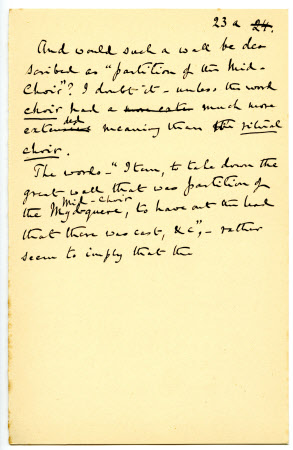 23 a 24.
And would such a wall be de-
scribed as "partition of the Mid-
Choir"? I doubt it - unless the word
choir had a more exten much more
extended meaning than the ritual
choir.
The words - "Item, to take down the
great wall that was partition of
Mid-Choir
the Mydsquere, to have out the lead
that there was cast, &c", - rather
seem to imply that the